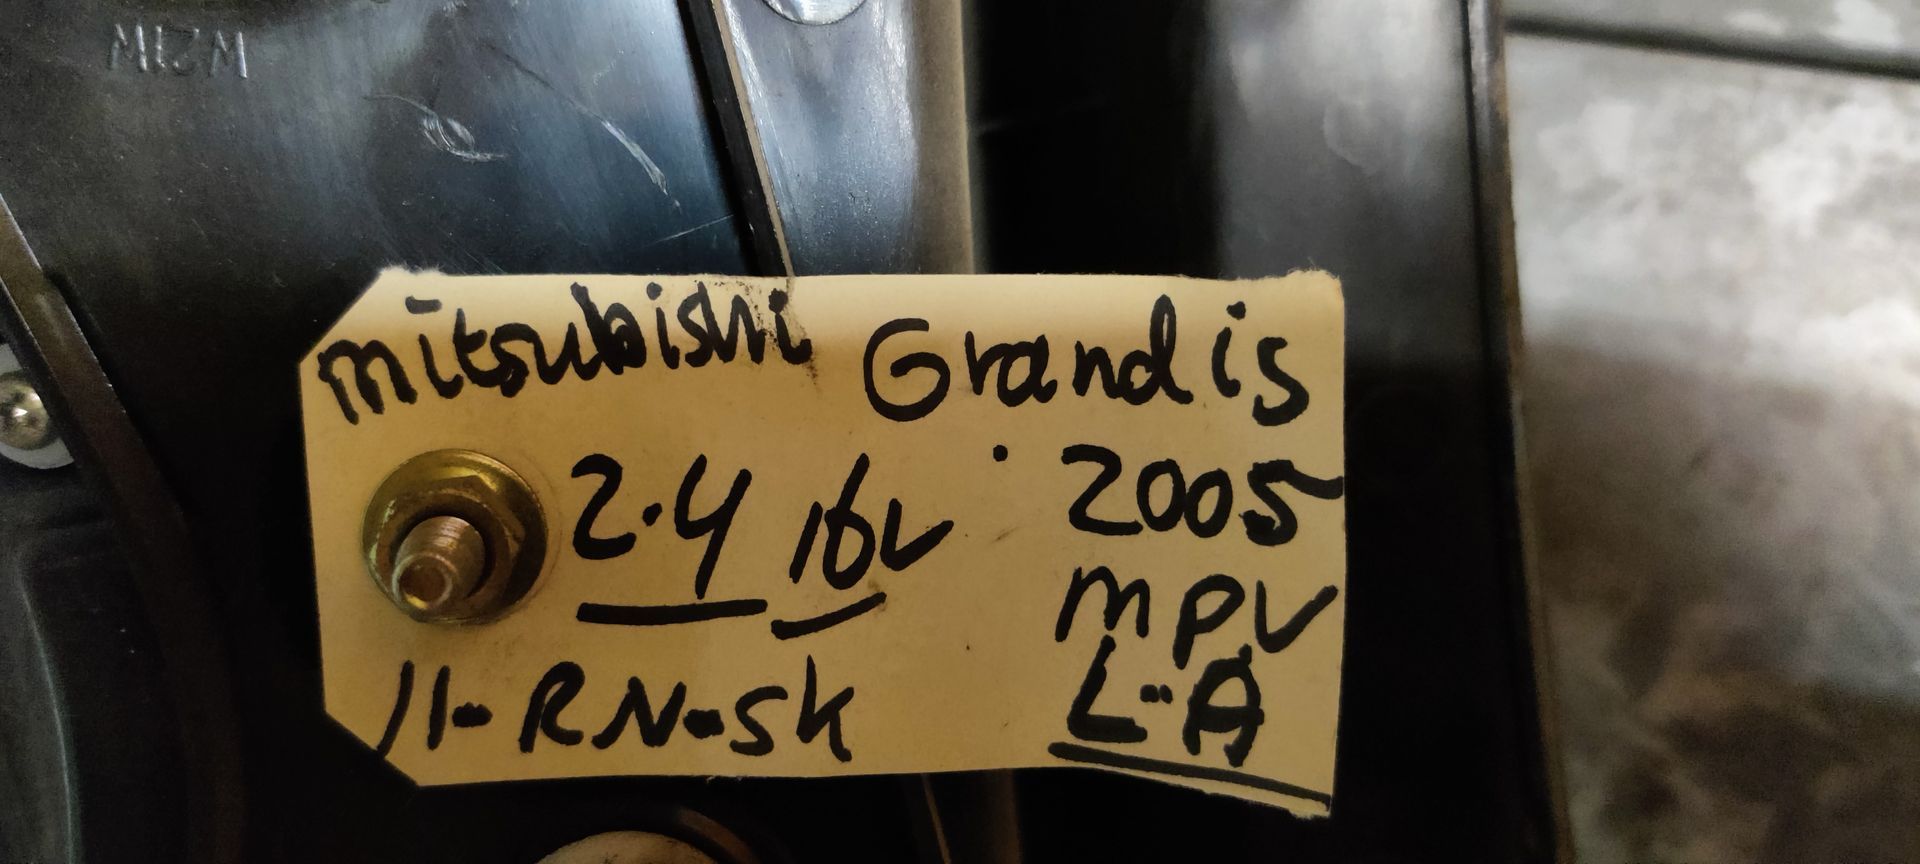 W21W
mitsubishi Grandis
2.4 16V 2005
MPV
11-RN-SK L-A